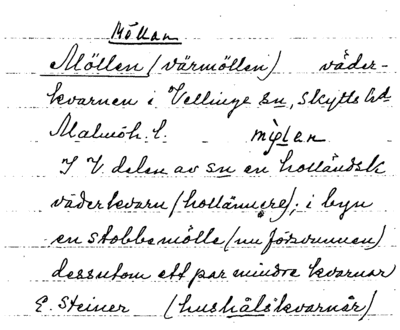 Möllan
Möllen (värmöllen) väder-
kvarnen i Vellinge sn, Skytts hd
Malmöh. l. möļļen
I V. delen av sn en holländsk
väderkvarn (hollännere); i byn
en stobbemölle (nu försvunnen)
dessutom ett par mindre kvarnar
E. Steiner (hushålskvarnår)